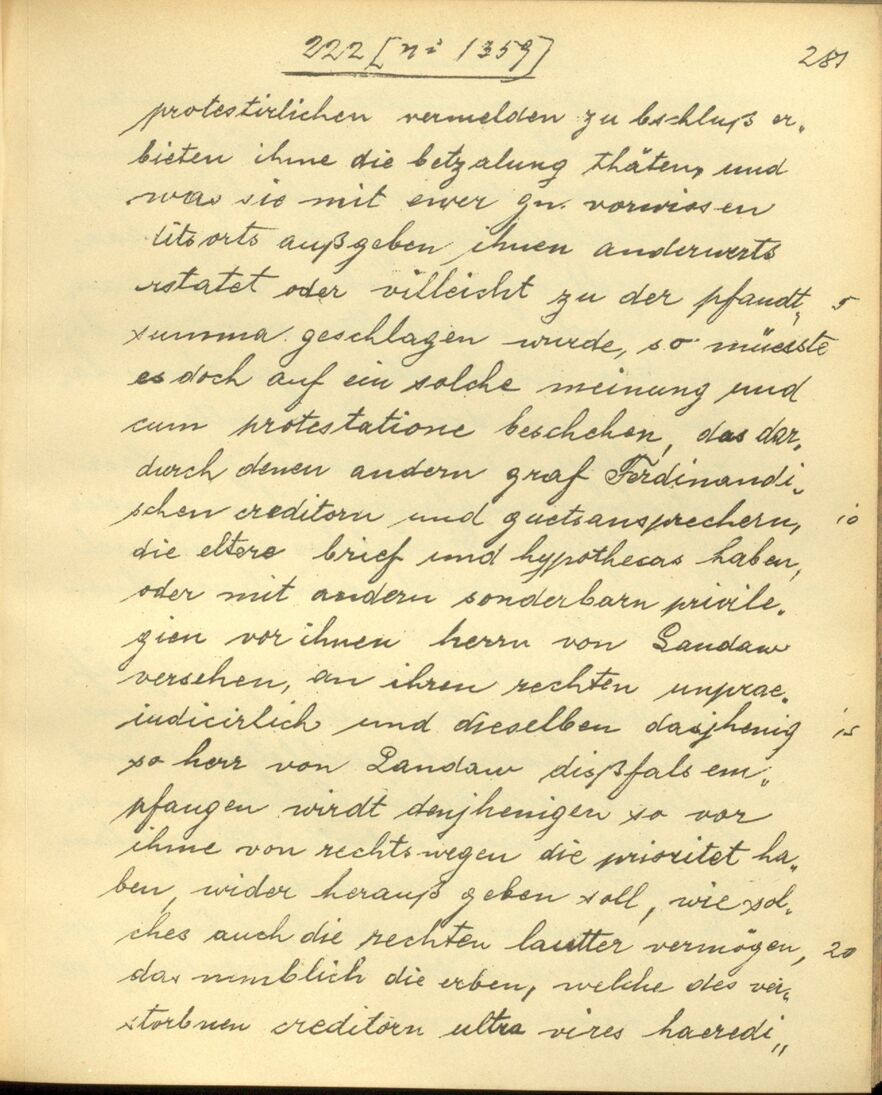 222 [nº 1359]
281
protestirlichen vermelden zu bschluß er„
bieten ihme die betzalung thäten, und
was sie mit ewer gn. vorwissen
litsorts außgeben ihnen anderwerts
erstatet oder villeicht zu der pfandt„ 5
summa geschlagen wurde, so müesste
es doch auf ein solche meinung und
cum protestatione beschehen, das dar„
durch denen andern graf Ferdinandi„
schen creditorn und guetsansprechern, 10
die eltere brief und hypothecas haben,
oder mit andern sonderbarn privile„
gien vor ihnen herrn von Landaw
versehen, an ihren rechten unprae„
iudicirlich und dieselben dasjhenig 15
so herr von Landaw dißfals em„
pfangen wirdt denjhenigen so vor
ihme von rechtswegen die prioritet ha„
ben, wider herauß geben soll, wie sol„
ches auch die rechten lautter vermögen, 20
das nemblich die erben, welche des ver„
storbnen creditorn ultra vires haeredi„